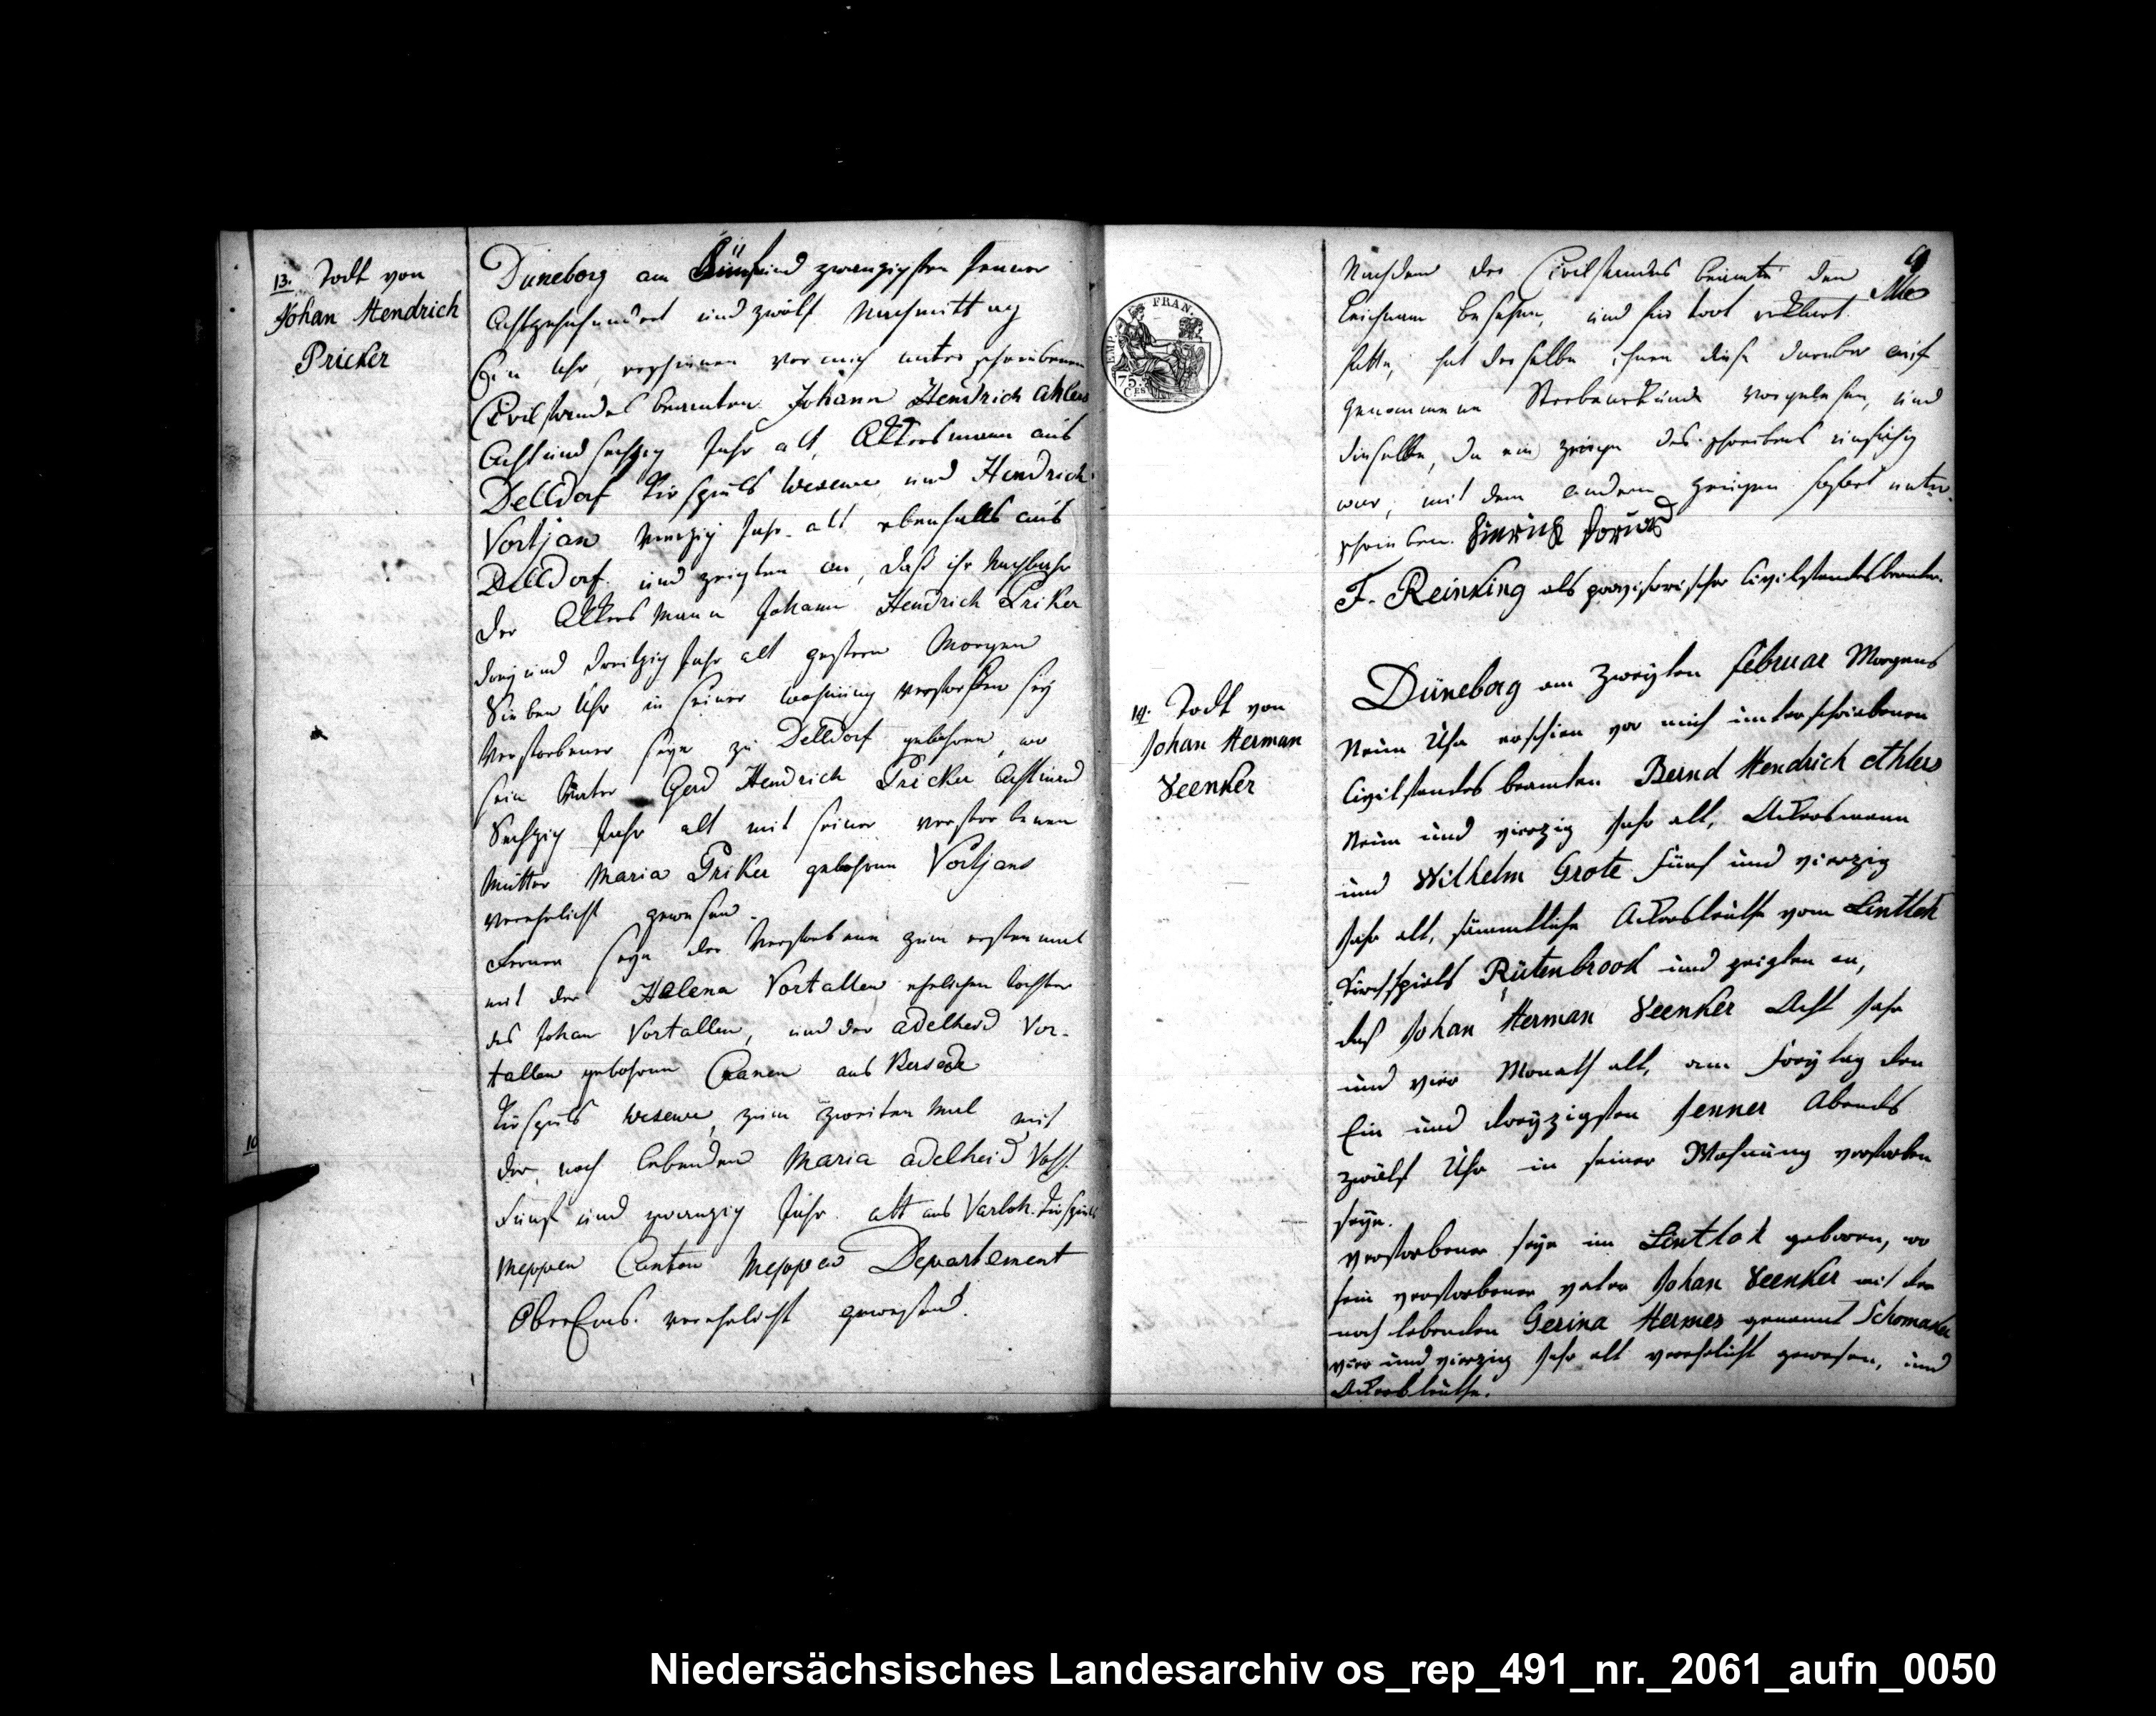 13. Todt von
Johan Hendrich
Pricker
Duneborg am Fünfund zwanzigsten Jenner
Achtzehnhundert und zwölf Nachmittag
Ein Uhr, erschienen vor mich unterschriebenen
Civilstandes beamten Johann Hendrich Ahlers
Acht und sechzig Jahr alt, Akkersmann aus
Delldorf Kirspiels Wesewe und Hendrich
Vortjan vierzig Jahr alt ebenfalls aus
Delldorf und zeigten an, daß ihr Nachbahr
der Akkers Mann Johann Hendrich Priker
drey und dreitzig Jahr alt gestern Morgen
Sieben Uhr in seiner wohnung verstorben sey
Verstorbener seye zu Delldorf gebohren, wo
sein Vater Gerd Hendrich Pricker Acht und
Sechzig Jahr alt mit seiner verstorbenen
Mutter Maria Priker gebohrne Vortjans
verehelicht gewesen.
Ferner seye der Verstorbene zum ersten mal
mit der Helena Vortallen ehelichen tochter
des Johan Vortallen, und der adelheid Vor-
tallen gebohrne Cranen aus Bersede
Kirspiels wesewe, zum zweiten Mal mit
der noch lebenden Maria adelheid Voss
fünf und zwanzig Jahr alt aus Varloh Kirspiels
Meppen Canton Meppen Departement
OberEms verehelicht gewesend.
10
EMP. FRAN.
75.
CES
Nachdem der Civilstandes beamte den
Leichnam besehen, und für todt erklärt
hatte, hat derselbe ihnen diese darüber auf
genommene Sterbeurkunde vorgelesen, und
dieselbe, da ein zeuge des schreibens unfähig
war, mit dem andern zeugen sofort unter-
schrieben.
F. Reinking als provisorischer Civilstandesbeamter.
14. Todt von
Johan Herman
Veenker
Düneborg am Zweyten februar Morgens
Neun Uhr erschien vor mich unterschriebenen
Civilstandes beamten Bernd Hendrich Athlers
Neun und vierzig Jahr alt, Ackersmann
und Wilhelm Grote Fünf und vierzig
Jahr alt, sämmtliche Ackersleuthe vom Lintloh
Kirchspiels Rütenbrook und zeigten an,
daß Johan Herman Veenker Acht Jahr
und vier Monath alt, am Freytag den
Ein und dreyzigsten Jenner Abends
zwölf Uhr in seiner Wohnung verstorben
seye.
Verstorbener seye im Lintloh geboren, wo
sein verstorbener vater Johan Veenker mit der
noch lebenden Gerina Hermes genannt Schomaker
vier und vierzig Jahr alt verehelicht gewesen, und
Ackersleuthe.
Niedersächsisches Landesarchiv os_rep_491_nr._2061_aufn_0050